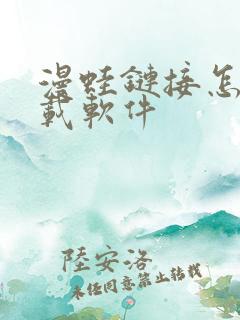 漫蛙鏈接怎
載軟件
陸安洛
未经同意禁止转载